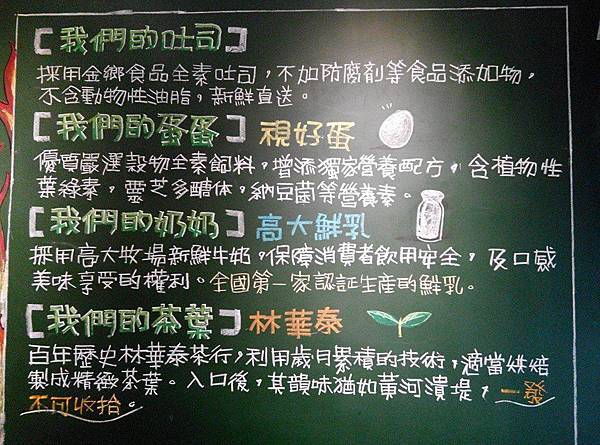 [我們的吐司]
採用金鄉食品全素吐司，不加防腐劑等食品添加物，
不含動物性油脂，新鮮直送。
[我們的蛋蛋] 視好蛋
優質嚴選穀物全素飼料，增添獨家營養配方，含植物性
葉綠素，靈芝多醣体，納豆菌等營養素。
[我們的奶奶] 高大鮮乳
採用高大牧場新鮮牛奶，保障消費者飲用安全，及口感
美味享受的權利。全國第一家認証生産的鮮乳。
[我們的茶葉] 林華泰
百年歷史林華泰茶行，利用歲月累積的技術，適當烘焙
製成精緻茶葉。入口後，其韻味猶如黃河潰堤，一發
不可收拾。